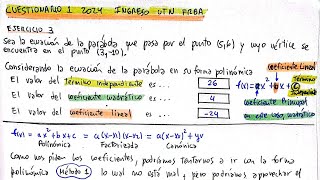 CUESTIONARIO 1 2024 INGRESO UTN FRBA
EJERCICIO 3
Sea la ecuación de la parábola que pasa por el punto (5,6) y cuyo vértice se
encuentra en el punto (3,-10).
Considerando la ecuación de la parábola en su forma polinómica
coeficiente lineal
El valor del término independiente es ... 26
f(x)=ax²+bx+c
Término
independiente
El valor del coeficiente cuadrático es ... 4
Coeficiente Principal
en este caso, cuadrático
El valor del coeficiente lineal es ... -24
f(x) = ax²+bx+c = a(x-x₁)(x-x₂) = a(x-xv)²+yv
Polinómica Factorizada Canónica
Como nos piden los coeficientes, podríamos tentarnos a ir con la forma
polinómica (Método 1) lo cual no está mal, pero podríamos aprovechar el